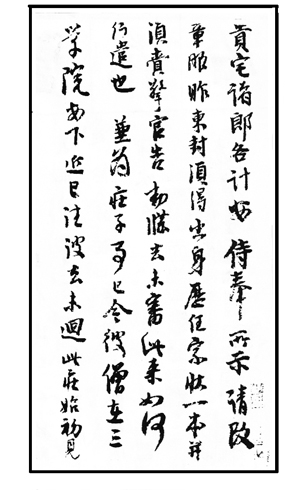 貴宅諸郎各計安侍奉所示請改
章服昨東封須得出身歷任家狀一本并
須賫擎官告勅牒去未審此來如何
行遣也兼為庄子事已令彼僧在三
學院安下近已往彼去未迴此庄始初見